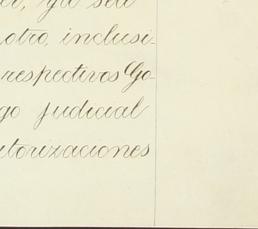 ya sea
otro, inclusi-
respectivos Go-
go judicial
utorizaciones